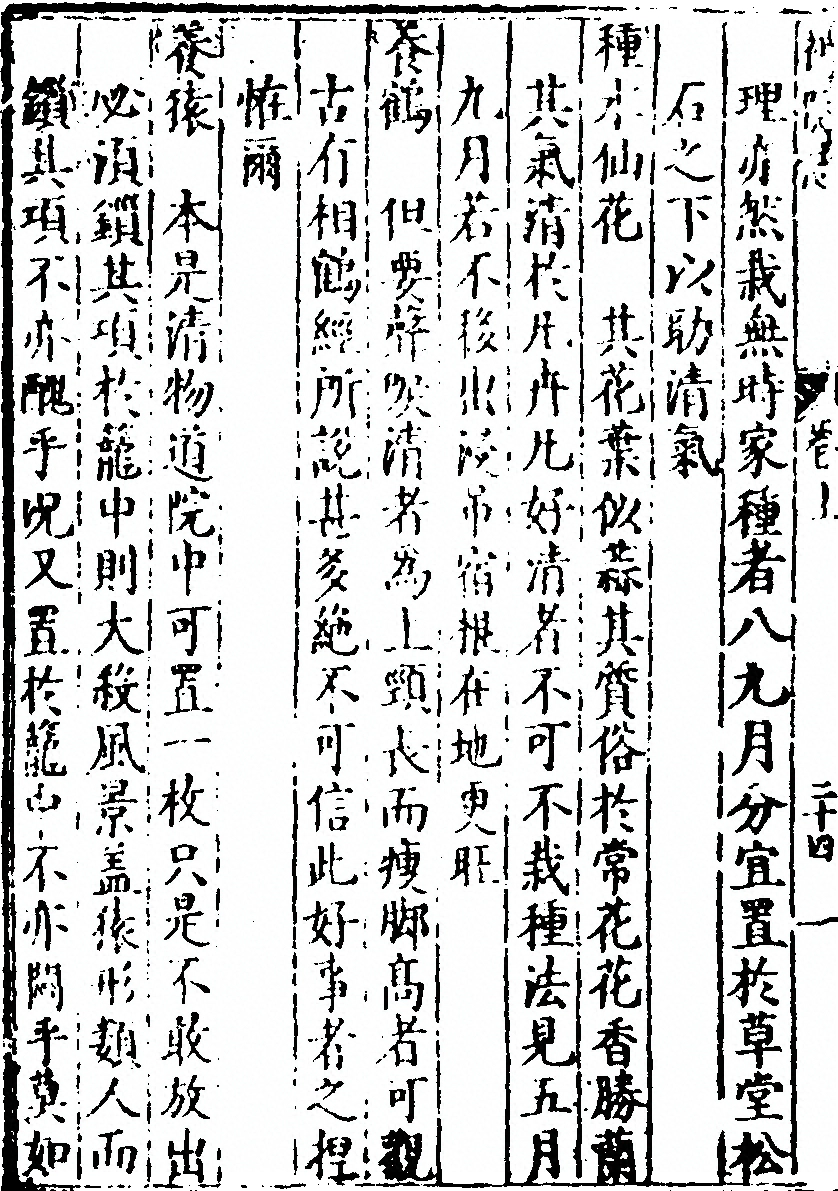 卷上
二十四
理亦然栽無時家種者八九月分宜置於草堂松
石之下以助清氣
種水仙花　其花葉似蒜其質俗於常花花香勝蘭
其氣清於凡卉凡好清者不可不栽種法見五月
九月若不移出院吊宿根在地更旺
養鶴　但要聲唳清者為上頸長而瘦脚高者可觀
古有相鶴經所說甚多絶不可信此好事者之捏
恠爾
養猿　本是清物道院中可置一枚只是不敢放出
必須鎖其項於籠中則大殺風景盖猿形類人而
鎖其項不亦醜乎况又置於籠中不亦悶乎莫如